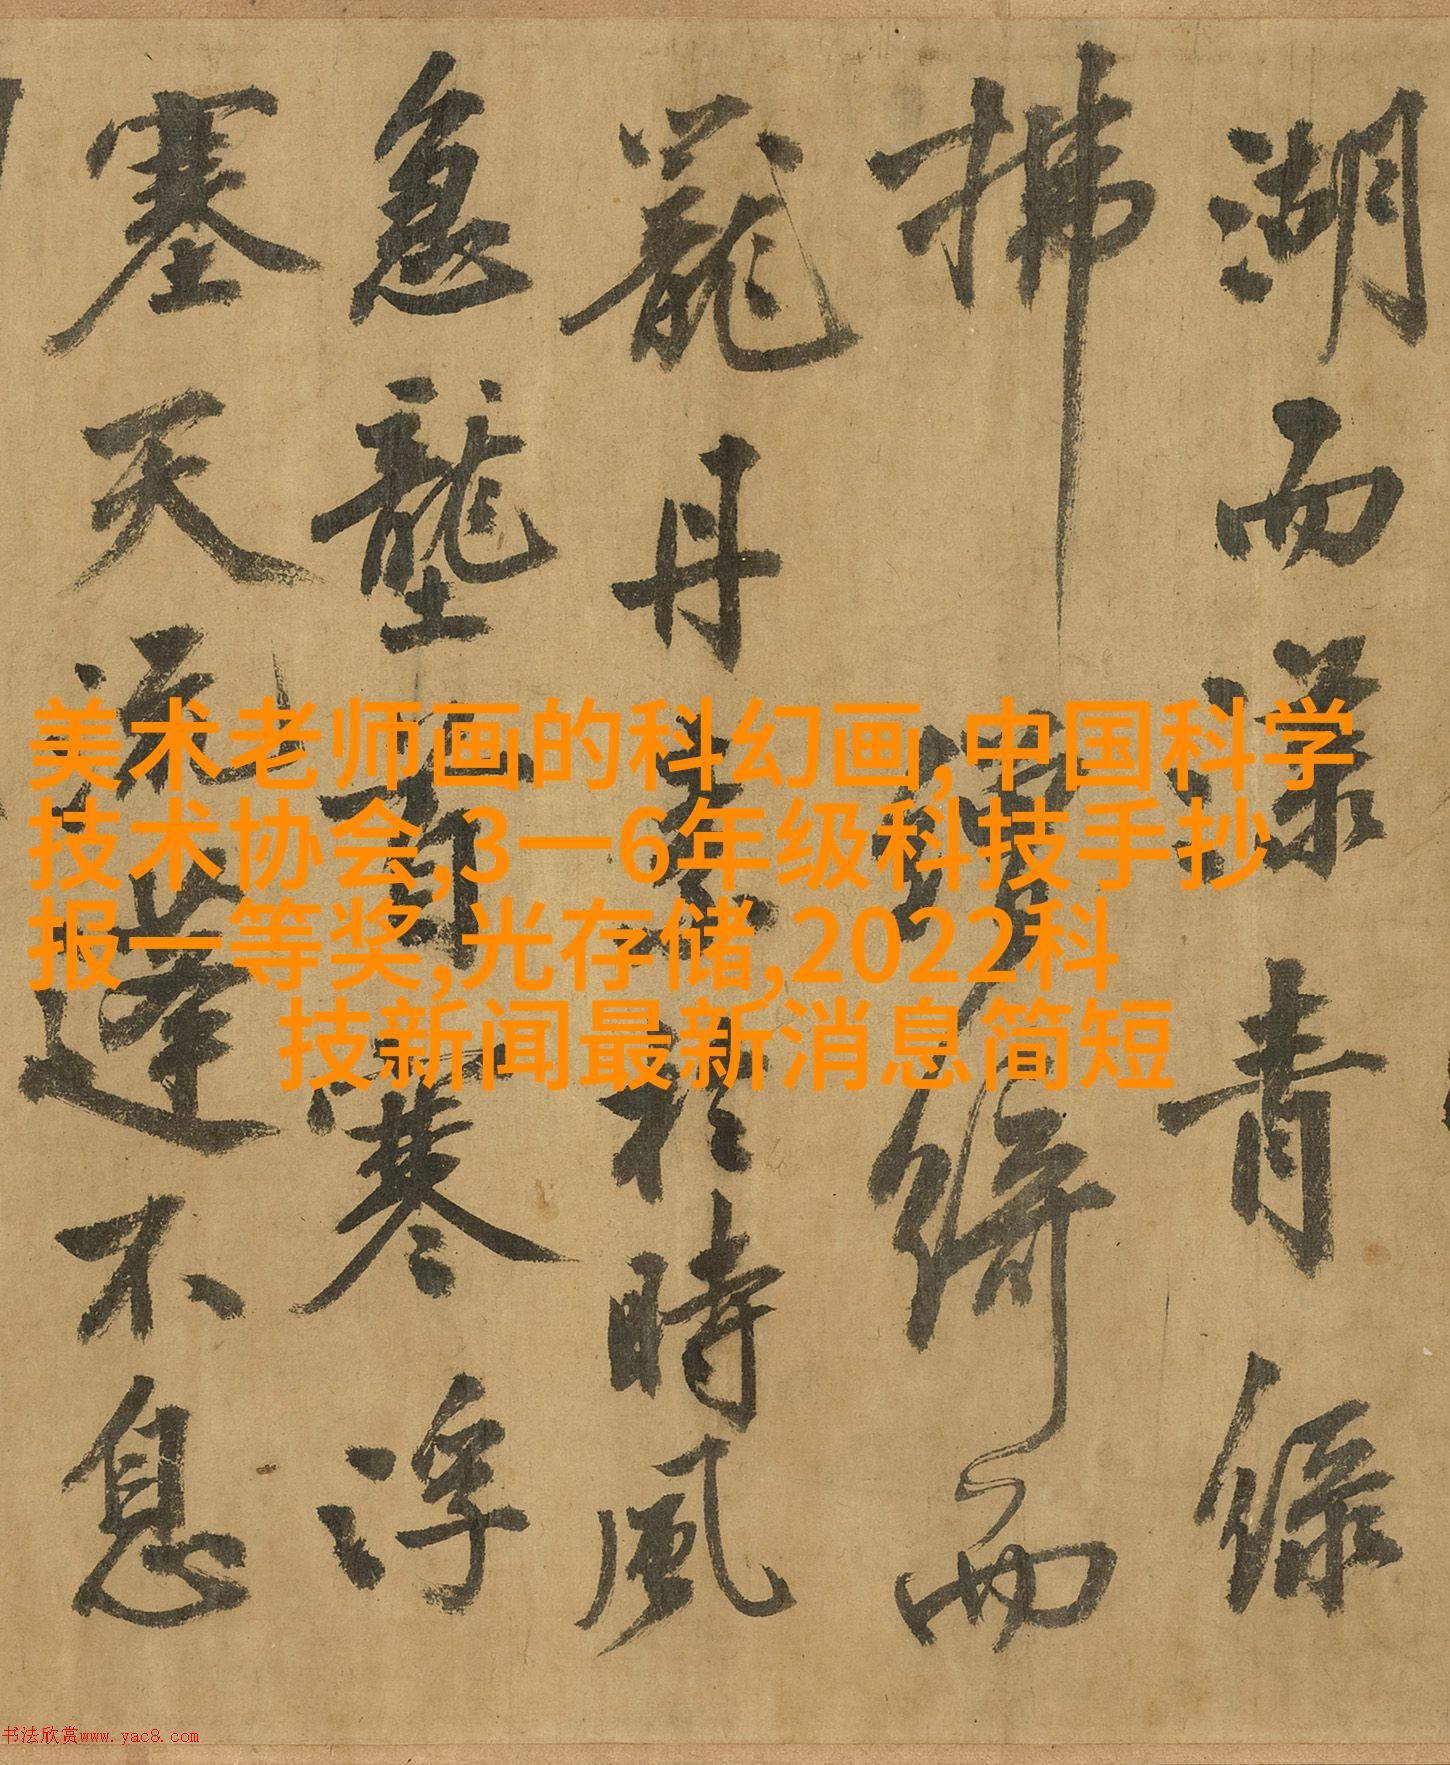 湖而漾青綠
拂綺而
丹素於時風
急壟首寒浮
塞天流蓬不息
美术老师画的科幻画,中国科学
技术协会,3一6年级科技手抄
报一等奖,光存储,2022科
技新闻最新消息简短
书法欣赏www.yac8.com